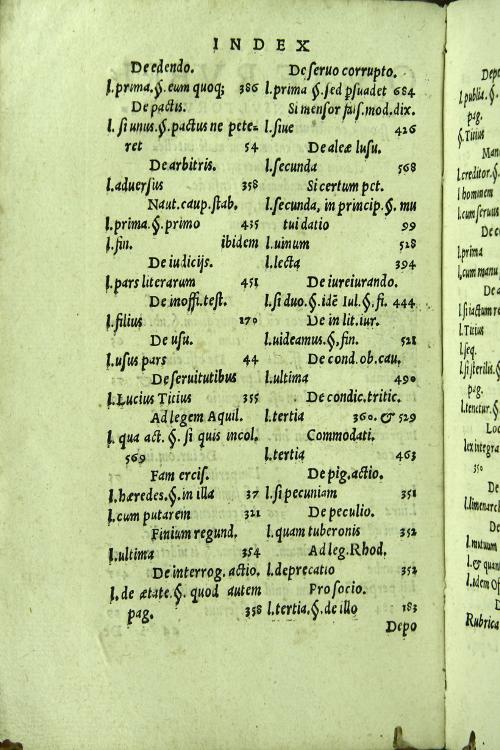 INDEX
De edendo.
l.prima.§. eum quoq; 386
De pactis.
l. si unus.§.pactus ne pete-
ret 54
De arbitris.
l.aduersius 358
Naut.caup.stab.
l.prima.§.primo 435
l.fin. ibidem
De iudicijs.
l.pars literarum 451
De inoffi.test.
l.filius 170
De usu.
l.usus pars 44
De seruitutibus
l.Lucius Ticius 355
Ad legem Aquil.
l. qua act.§. si quis incol.
569
Fam ercis.
l.hæredes.§.in illa 37
l.cum putarem 321
Finium regund.
l.ultima 354
De interrog.actio.
l.de ætate.§. quod autem
pag. 358
De seruo corrupto.
l.prima §.sed psuadet 684
Si mensor fals.mod.dix.
l.siue 426
De aleæ lusu.
l.secunda 568
Si certum pet.
l.secunda, in princip.§. mu
tui datio 99
l.uinum 528
l.lecta 394
De iureiurando.
l.si duo.§.idē Iul.§.fi. 444
De in lit.iur.
l.uideamus.§,fin. 521
De cond.ob.cau.
l.ultima 490
De condic.tritic.
l.tertia 360. & 529
Commodati.
l.tertia 463
De pig.actio.
l.si pecuniam 351
De peculio.
l.quam tuberonis 352
Ad leg.Rhod.
l.deprecatio 352
Pro socio.
l.tertia.§.de illo 183
Depo
Depo
l.publia.§.
pag.
§.Titius
Man
l.creditor.§.
l hominem
l.cum seruus
De c
l.prima
l,cum manu
De a
l.si iactum re
l.Titius
l.seq.
l.si sterilis.§
pag.
l.tenetur.§
Loc
lex integra
350
De
l.limenarch
De
l.mutuum
l.& quan
l.idem Of
D
Rubrica